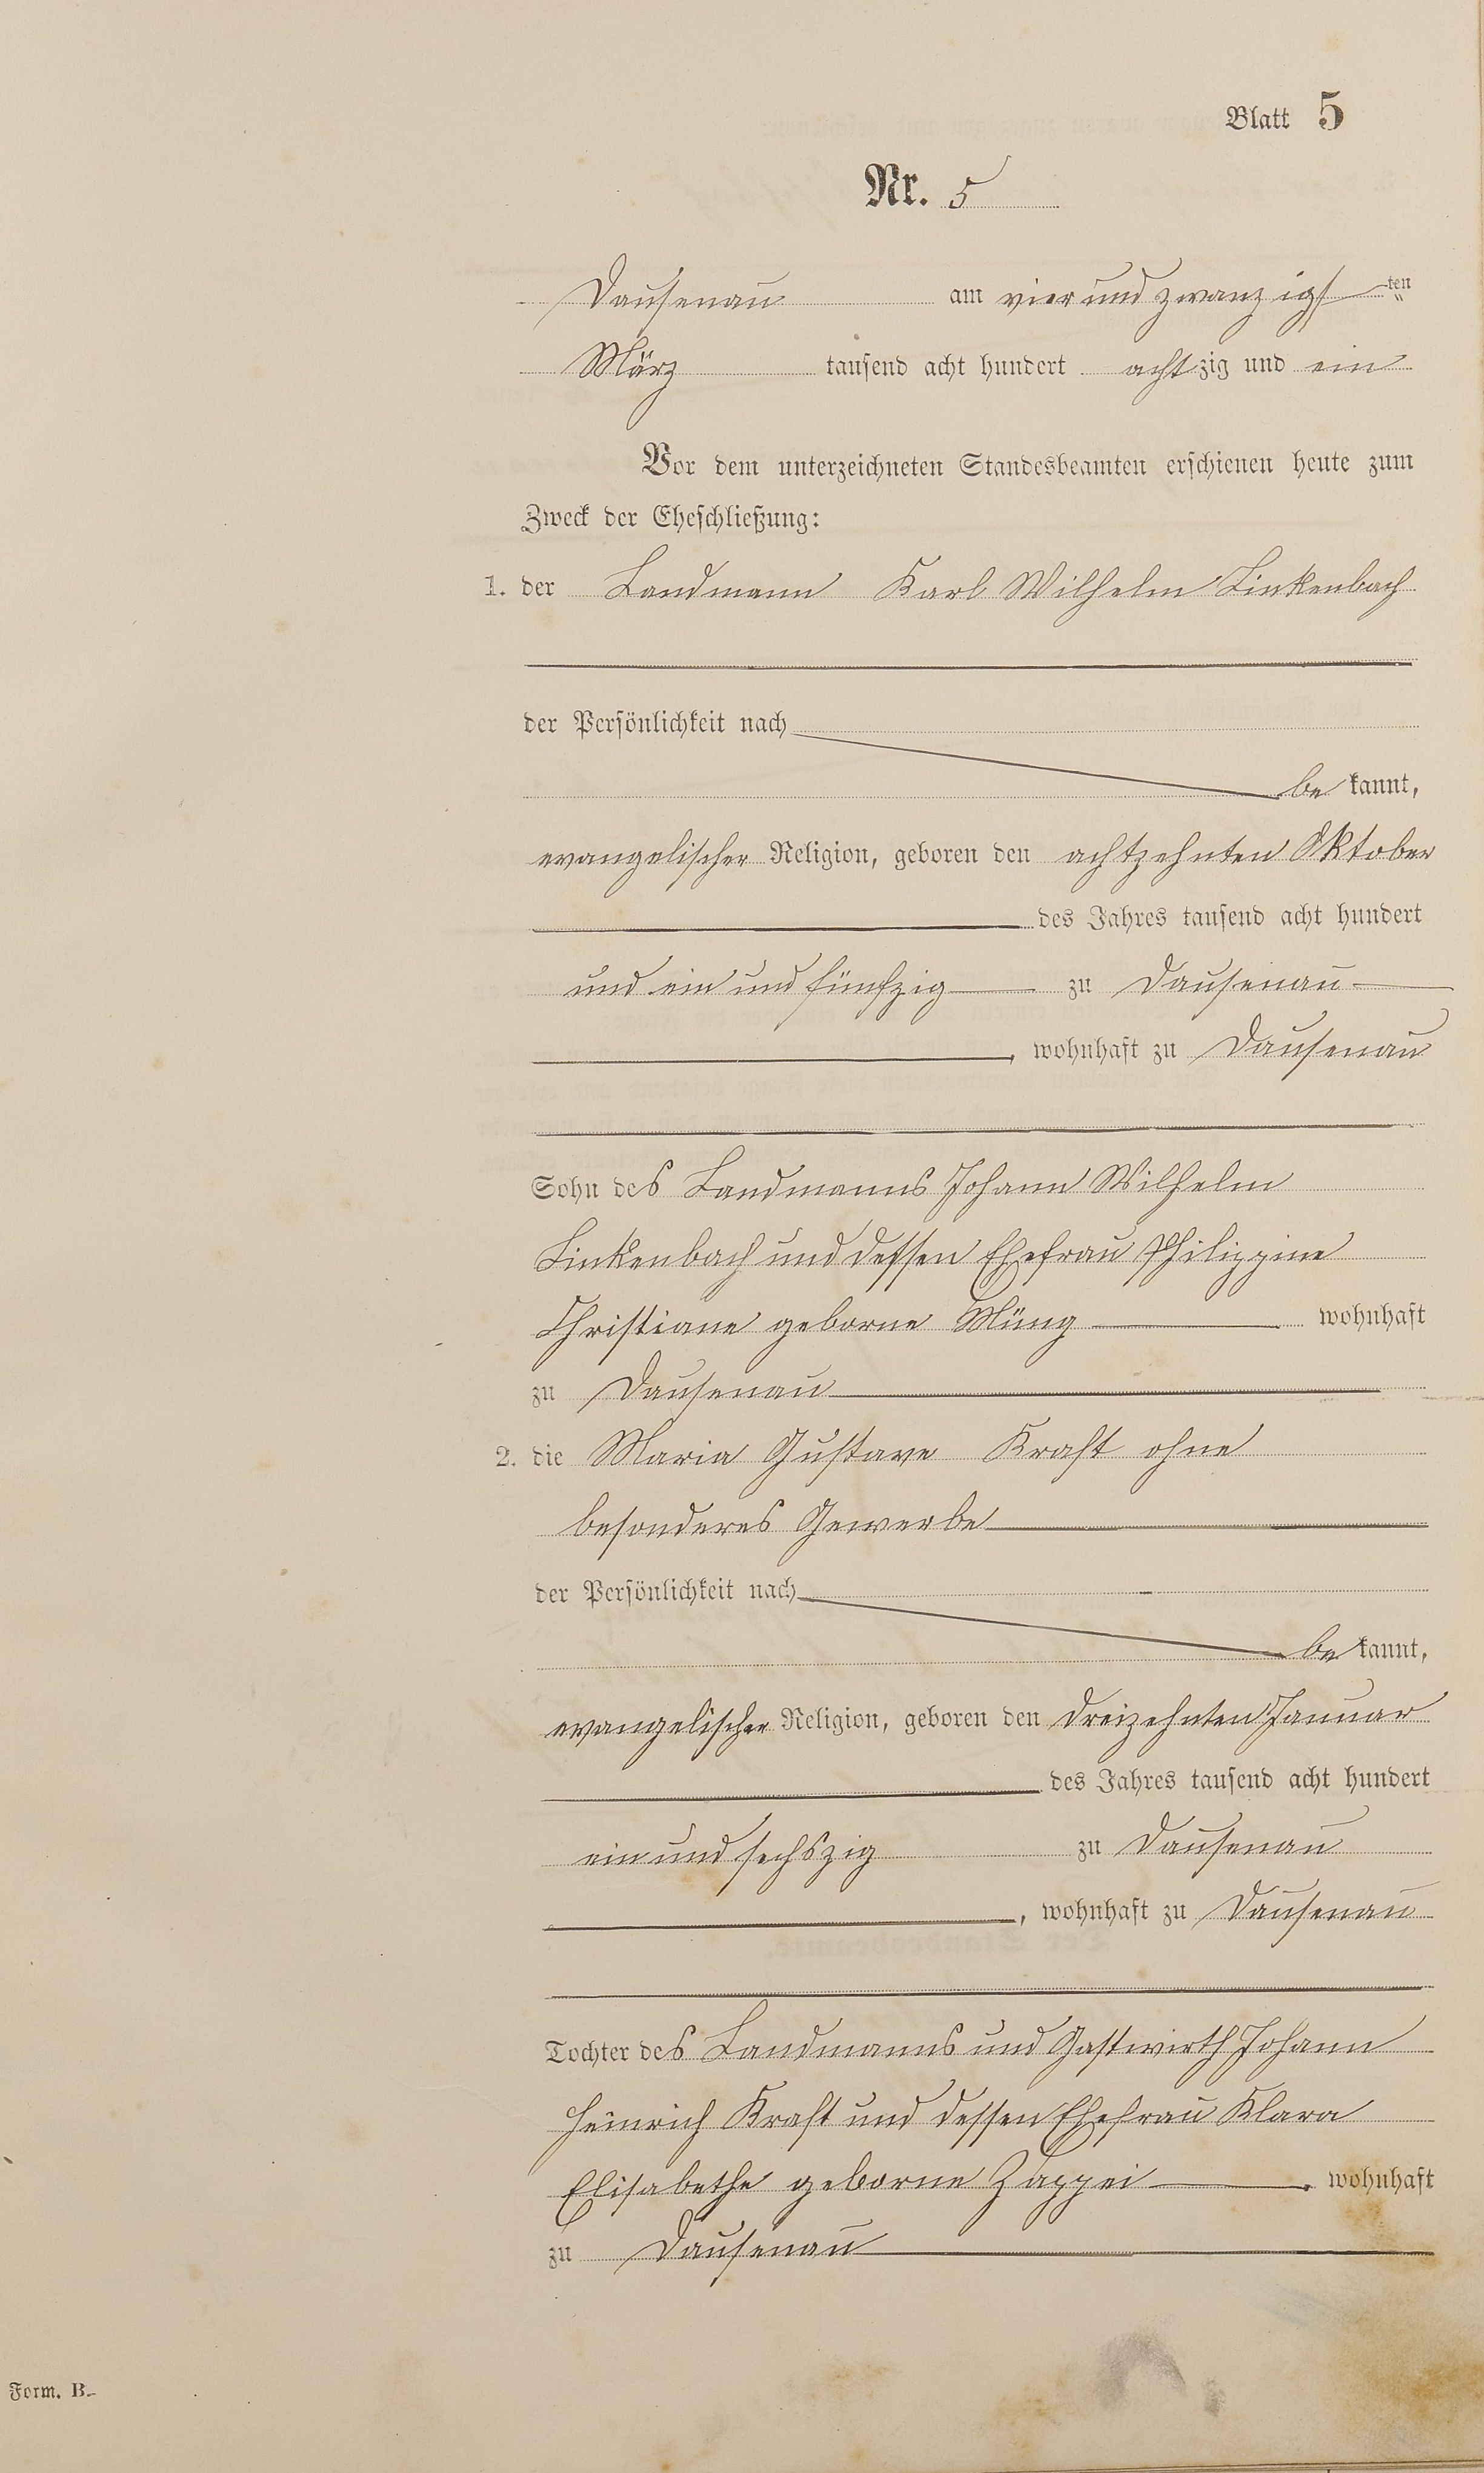 Blatt 5
Nr. 5
Dausenau am vier und zwanzigsten
März tausend acht hundert achtzig und ein
Vor dem unterzeichneten Standesbeamten erschienen heute zum
Zweck der Eheschließung:
1. der Landmann Karl Wilhelm Linkenbach
der Persönlichkeit nach
be kannt,
evangelischer Religion, geboren den achtzehnten Oktober
des Jahres tausend acht hundert
und ein und fünfzig zu Dausenau
, wohnhaft zu Dausenau
Sohn des Landmanns Johann Wilhelm
Linkenbach und dessen Ehefrau Philippine
Christiane geborne Müng wohnhaft
zu Dausenau
2. die Maria Gustave Kraft ohne
besonderes Gewerbe
der Persönlichkeit nach
be kannt,
evangelischer Religion, geboren den dreizehnten Januar
des Jahres tausend acht hundert
ein und sechszig zu Dausenau
, wohnhaft zu Dausenau
Tochter des Landmanns und Gastwirth Johann
Heinrich Kraft und dessen Ehefrau Klara
Elisabethe geborne Zappei wohnhaft
zu Dausenau
Form. B.